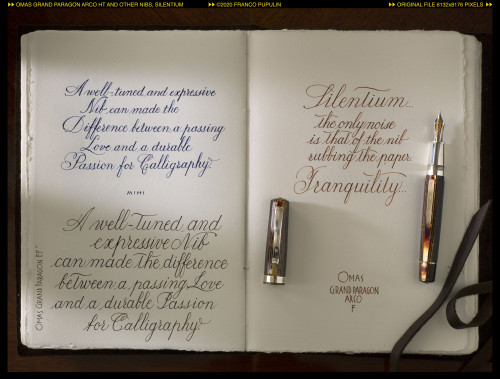 OMAS GRAND PARAGON ARCO HT AND OTHER NIBS, SILENTIUM
©2020 FRANCO PUPULIN
ORIGINAL FILE 6132x8176 PIXELS
A well-tuned and expressive
Nib can made the
Difference between a passing
Love and a durable
Passion for Calligraphy.
A well-Tuned and
expressive Nib
can made the difference
between a passing Love
and a durable Passion
for Calligraphy.
OMAS GRAND PARAGON EF
Silentium...
the only noise
is that of the nib
rubbing the paper.
Tranquility...
OMAS
GRAND PARAGON
ARCO
F